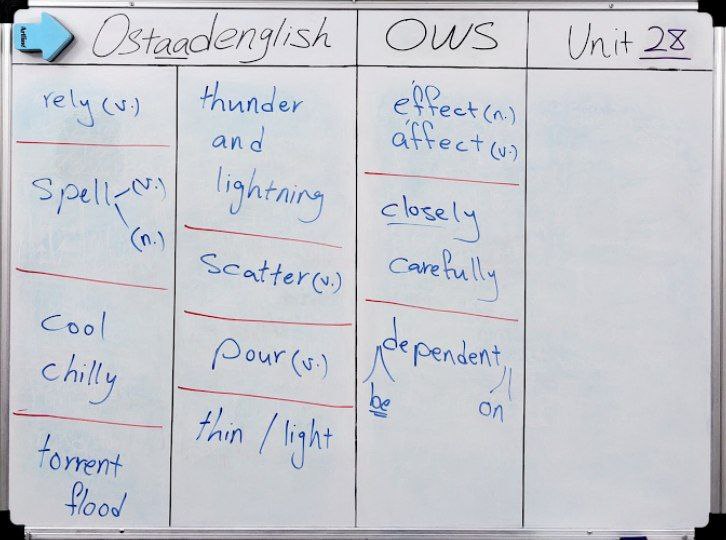 Artline
Ostaadenglish
OWS
Unit 28
rely (v.)
spell (v.)
(n.)
cool
chilly
torrent
flood
thunder
and
lightning
scatter (v.)
pour (v.)
thin / light
effect (n.)
affect (v.)
closely
carefully
dependent
be on